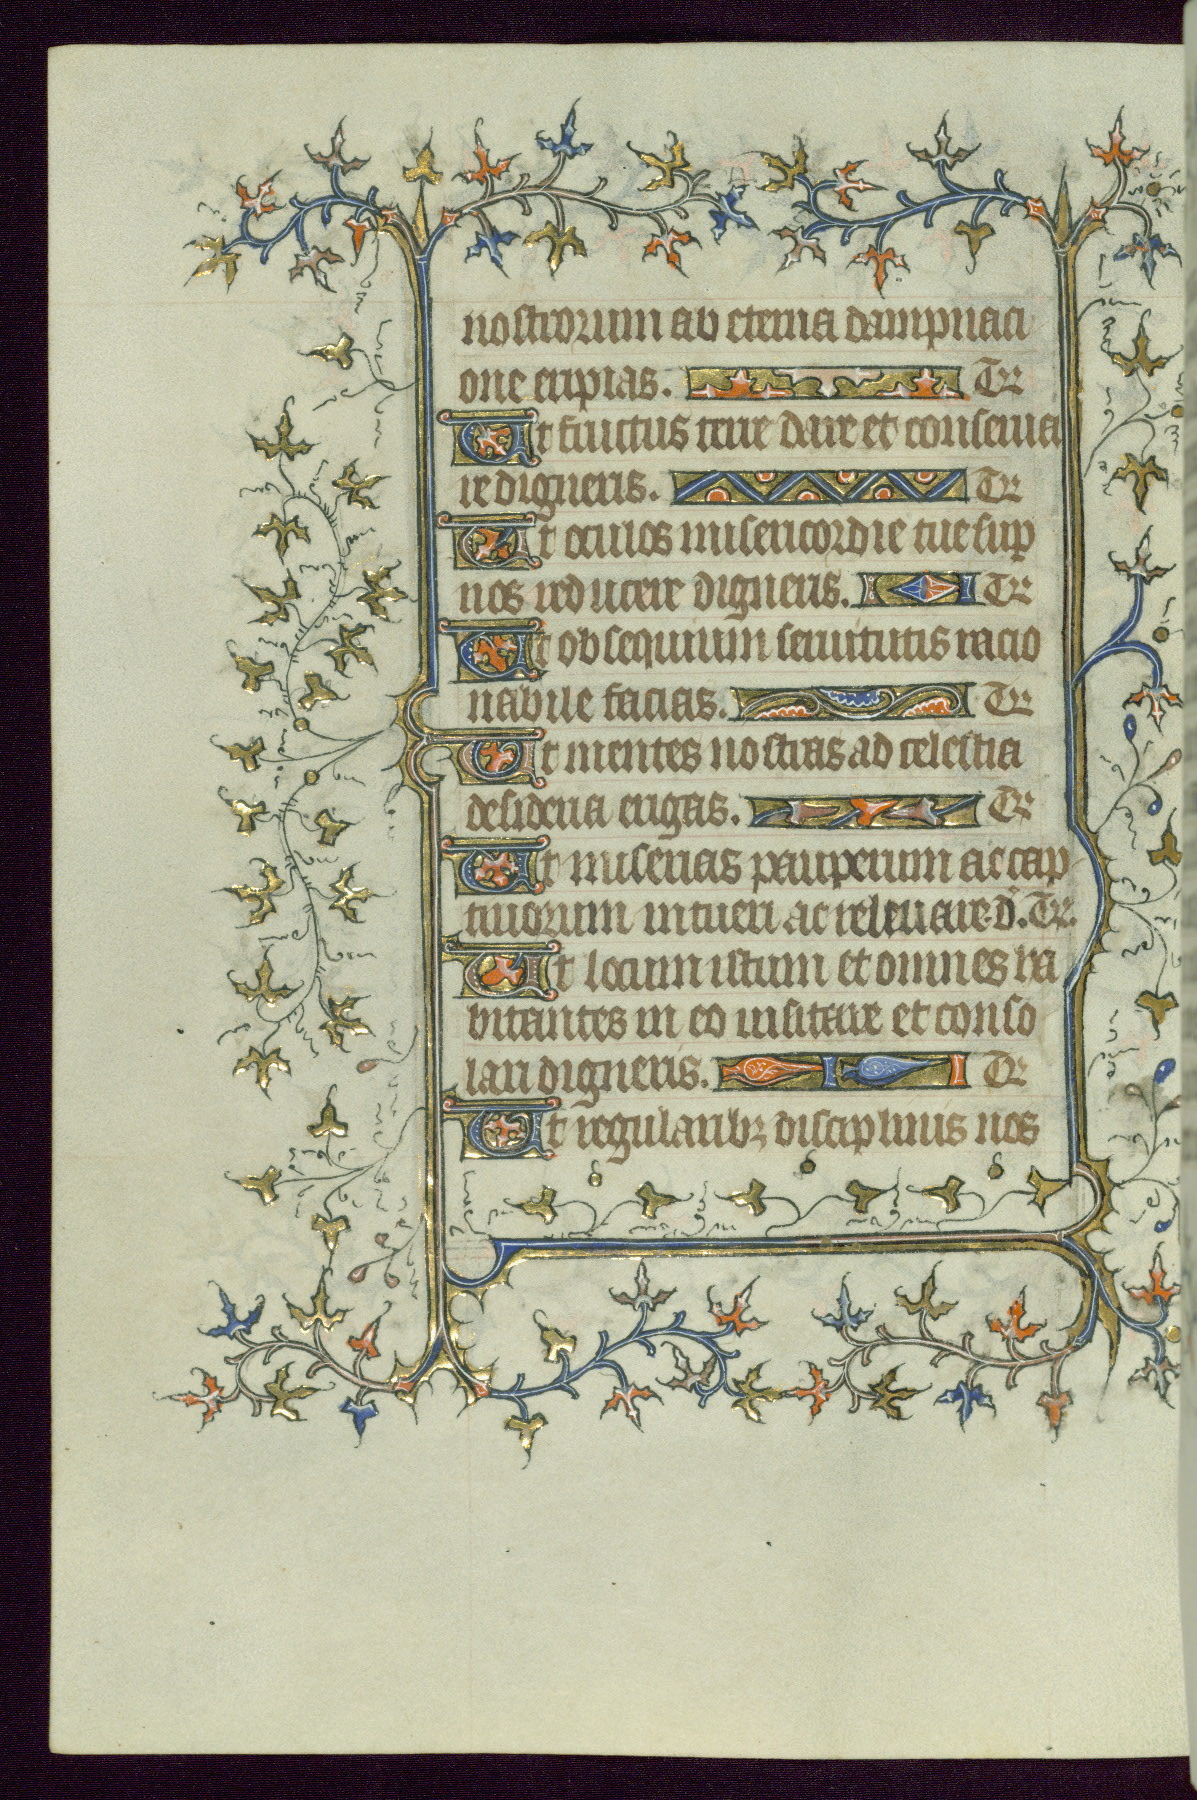 nostrorum ab eterna dampnaci
one eripias. Te
Ut fructus terre dare et conserua
re digneris. Te
Ut oculos misericordie tue sup
nos reducere digneris. Te
Ut obsequium seruitutis racio
nabile facias. Te
Ut mentes nostras ad celestia
desideria erigas. Te
Ut miserias pauperum ac cap
tiuorum intueri ac releuare d. Te.
Ut locum istum et omnes ha
bitantes in eo uisitare et conso
lari digneris. Te
Ut regularibꝫ disciplinis nos